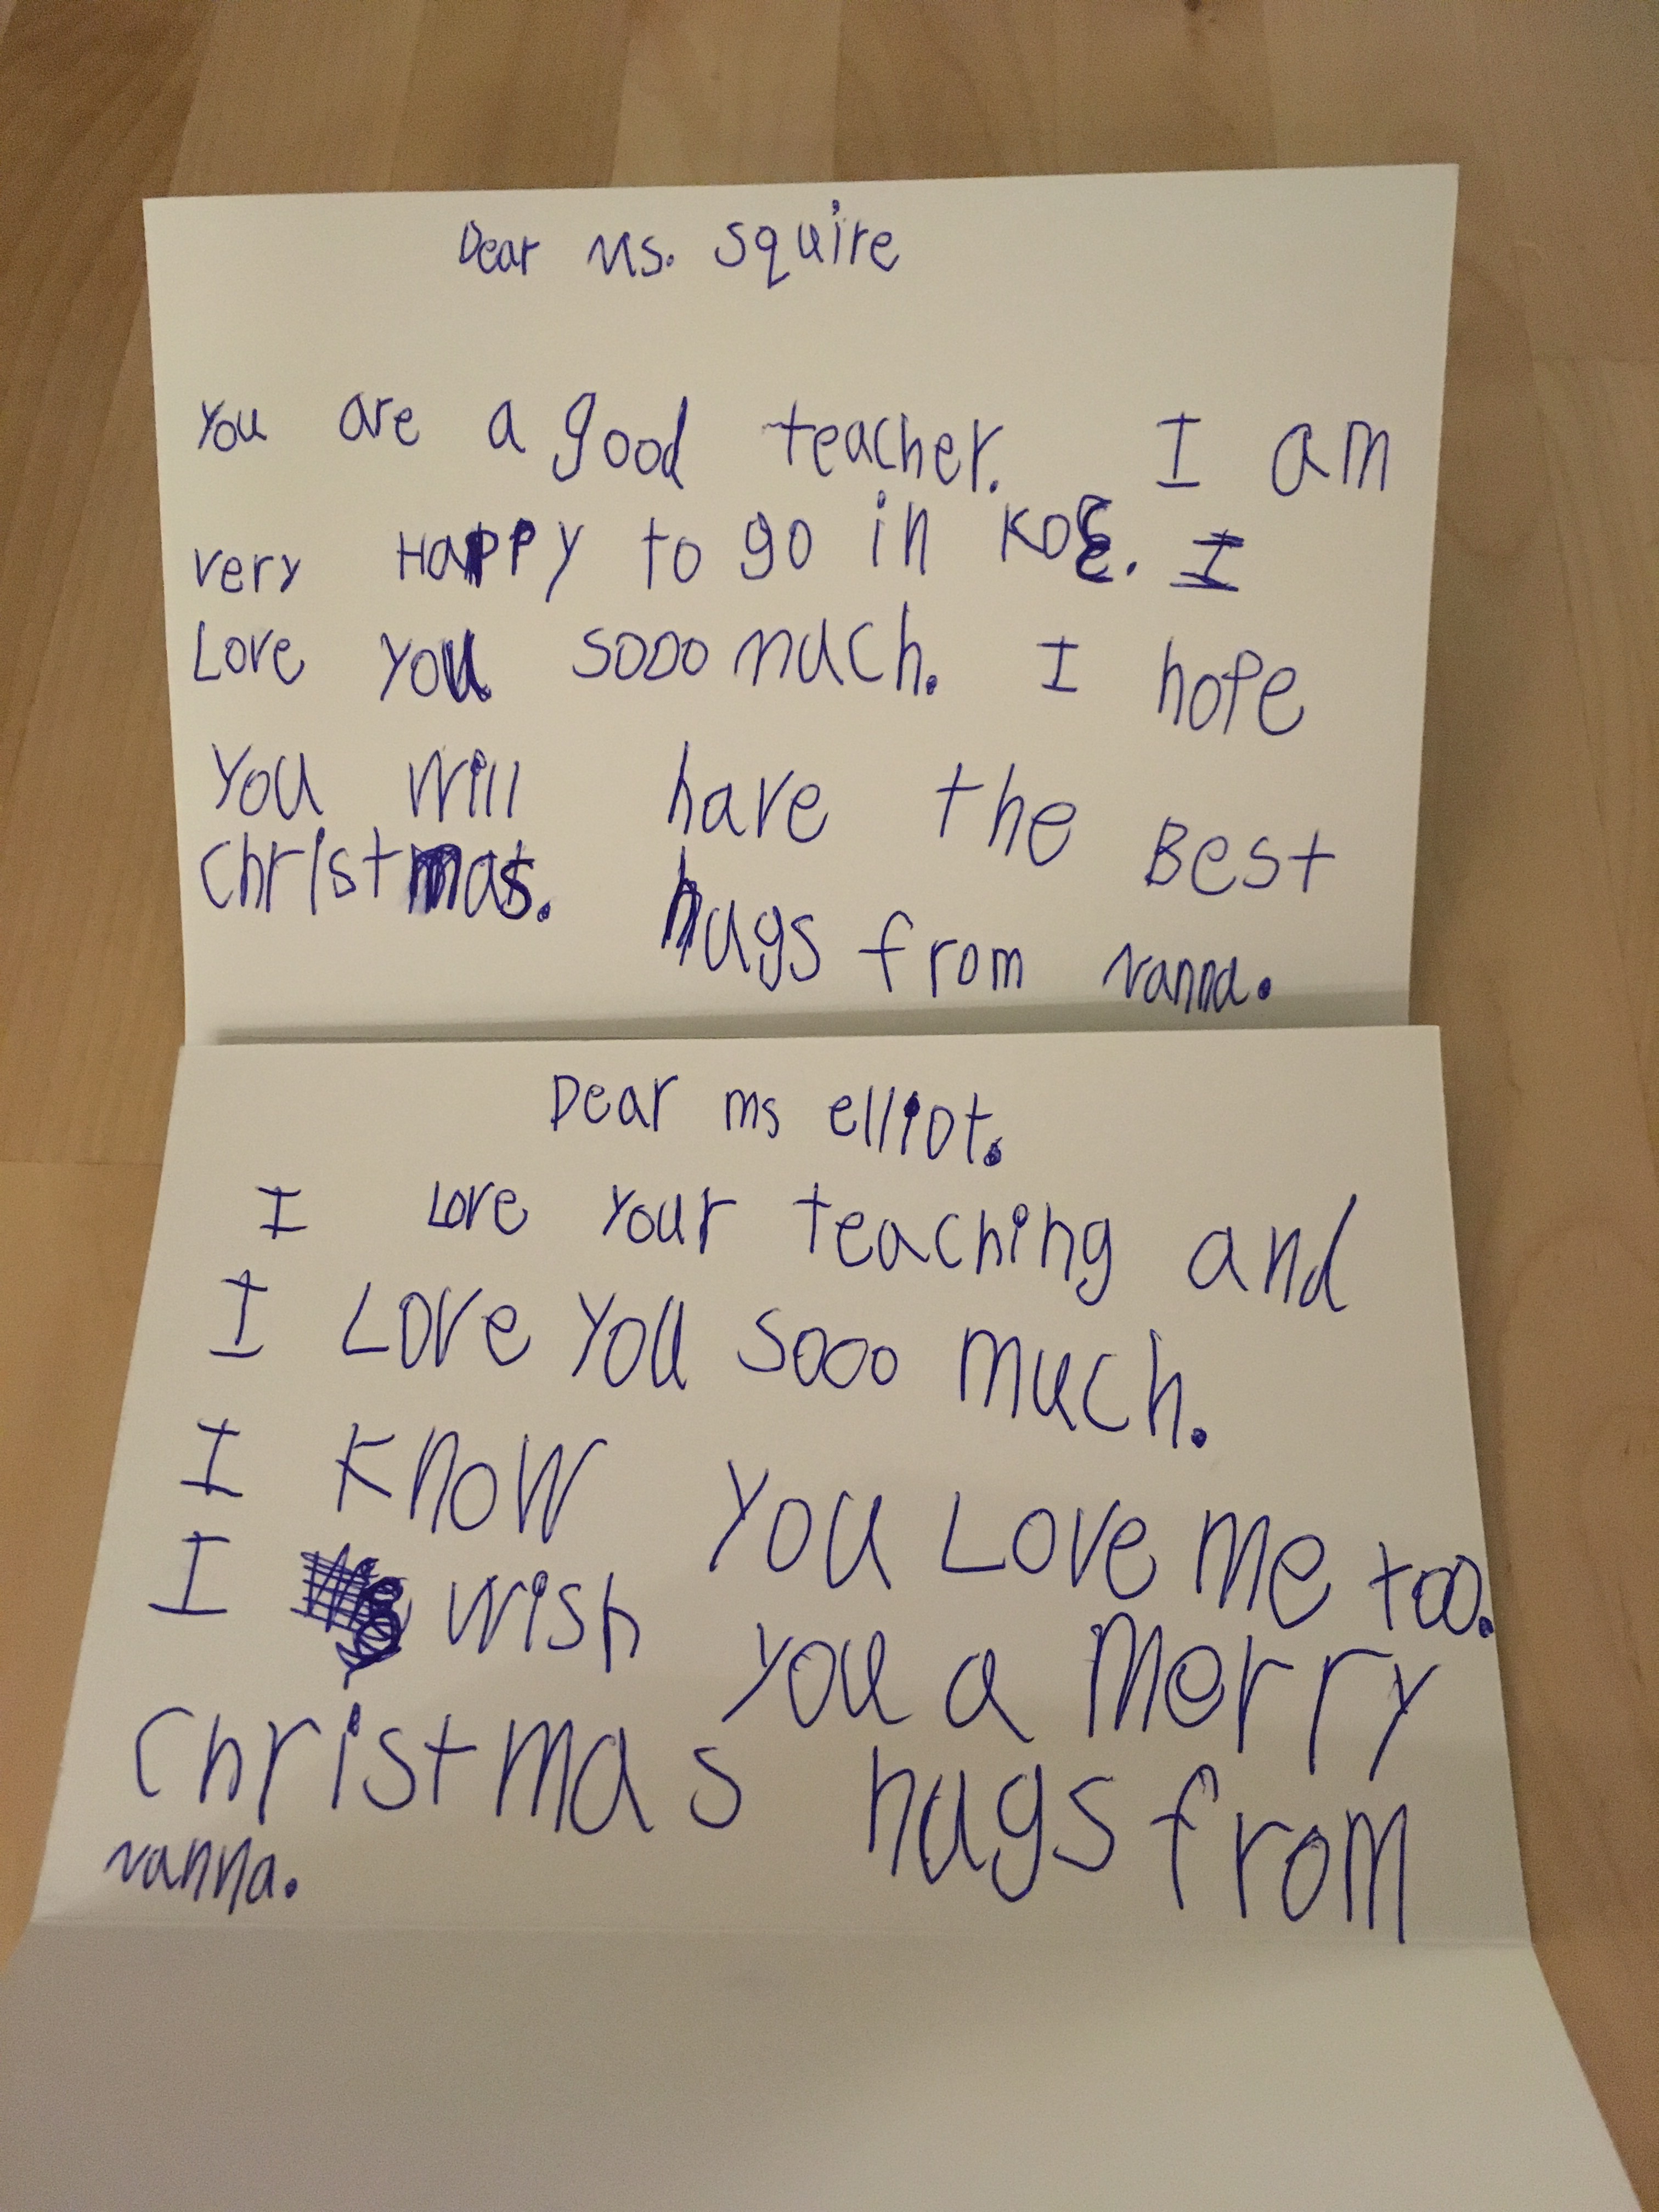 Dear Ms. Squire
You are a good teacher. I am
very Happy to go in I
Love you sooo much. I hope
you will have the Best
christmas. hugs from Nanna.
Dear ms elliot.
I Love your teaching and
I Love you sooo much.
I know you Love me too.
I wish you a Merry
christmas hugs from
Nanna.